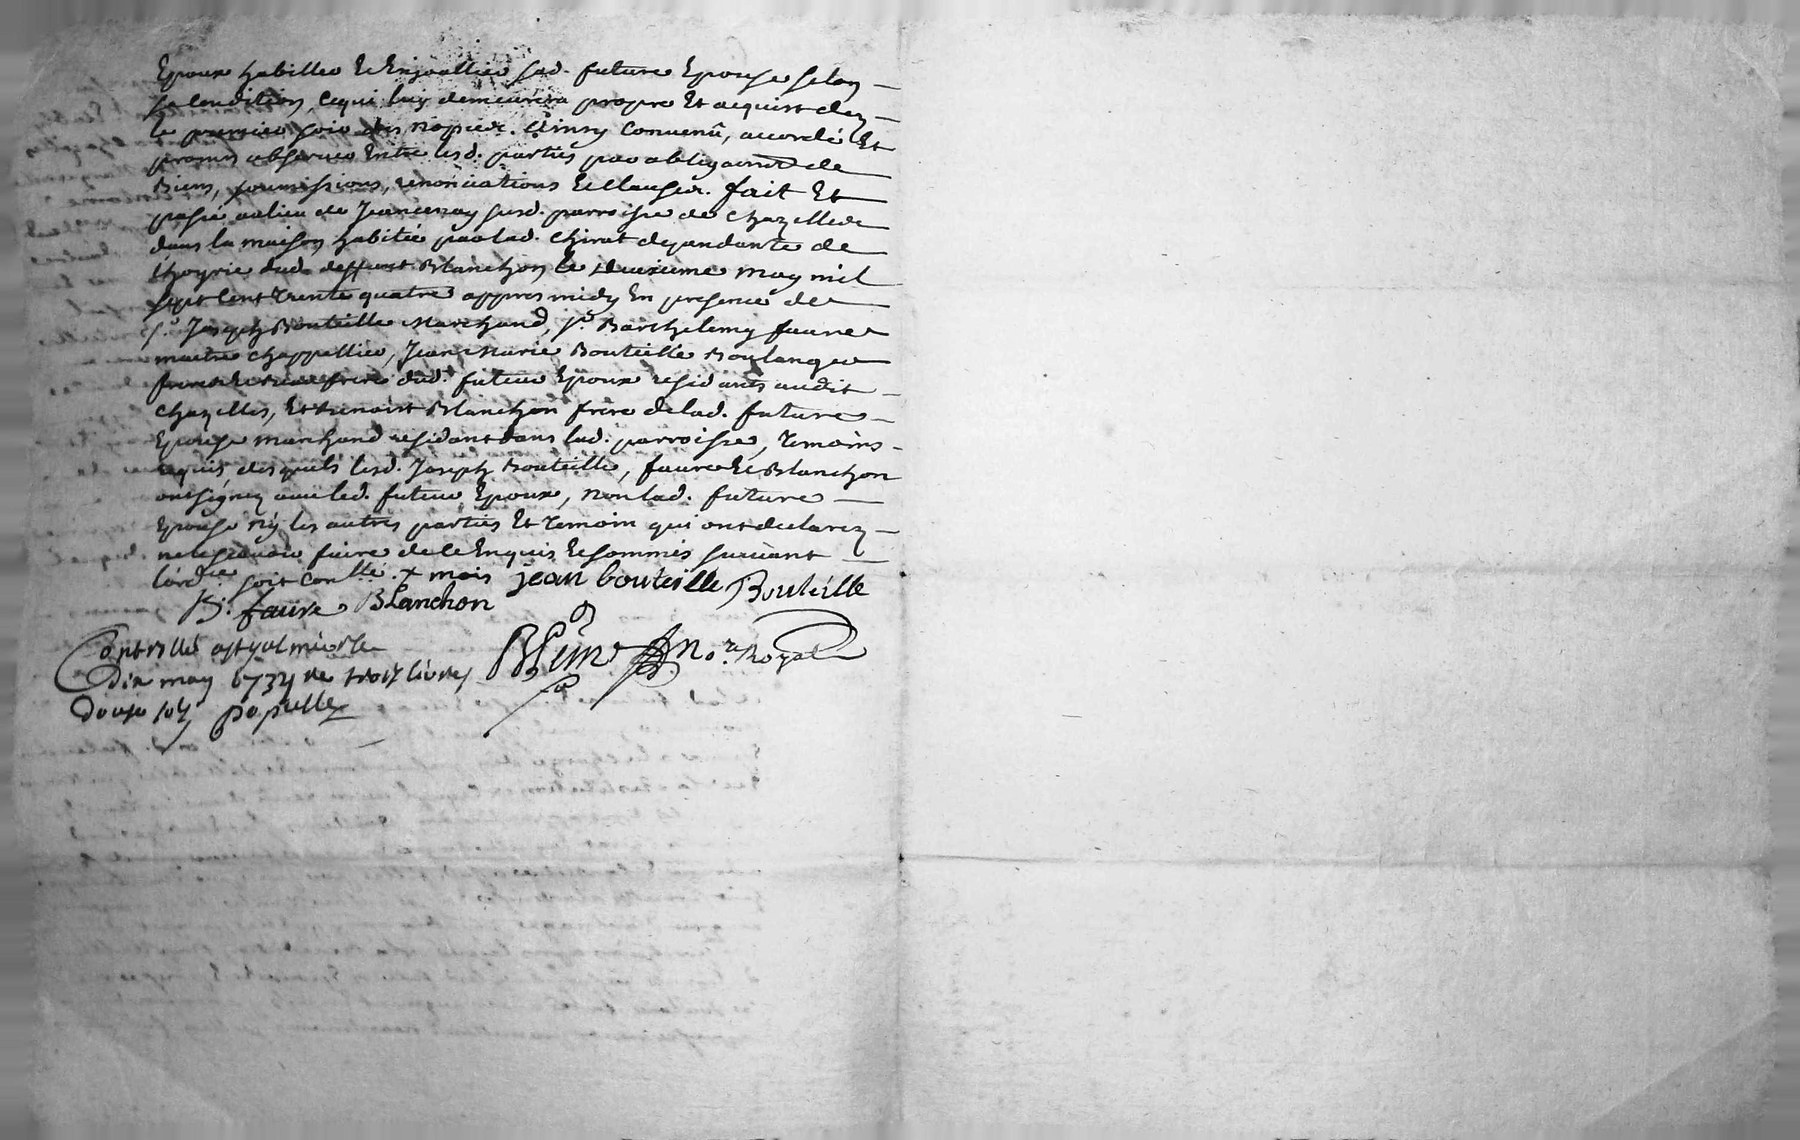 Epoux habiller Et Enjoallier sad. future Epouse selon
sa Condition, Cequi luy demeurera propre Et acquist dez
le premier soir des nopces. Ainsy Convenû, accordé Et
promis observer Entre lesd. parties par obligaõns de
Biens, soumissions, renonciations Et Clauses. fait Et
passé au lieu de Jeancenay susd. parroisse de Chazelles
dans la maison habitée par lad. Chirat dependante de
l'hoyrie dud. deffunt Blanchon le deuxieme may mil
sept Cent Trente quatre appres midy En presence de
sr. Joseph Bouteille Marchand, sr. Barthelemy faure
maitre chappellier, Jean Marie Bouteille Boulanger
frere dud. futeur Epoux residants audit
Chazelles, Et Benoist Blanchon frere de lad. future
Epouse marchand residant dans lad. parroisse, Temoins
requis desquels lesd. Joseph Bouteille, faure Et Blanchon
ont signez avec led. futeur Epoux, Non lad. future
Epouse ny les autres parties Et Temoin qui ont declarez
ne le scavoir faire de ce Enquis Et sommés suivant
l'ordce soit Conllé. x mois jean bouteille Bouteille
B. faure Blanchon
Controllé a St galmier le
dix may 1734 re trois livres
douze sols popelle
no.re Royal